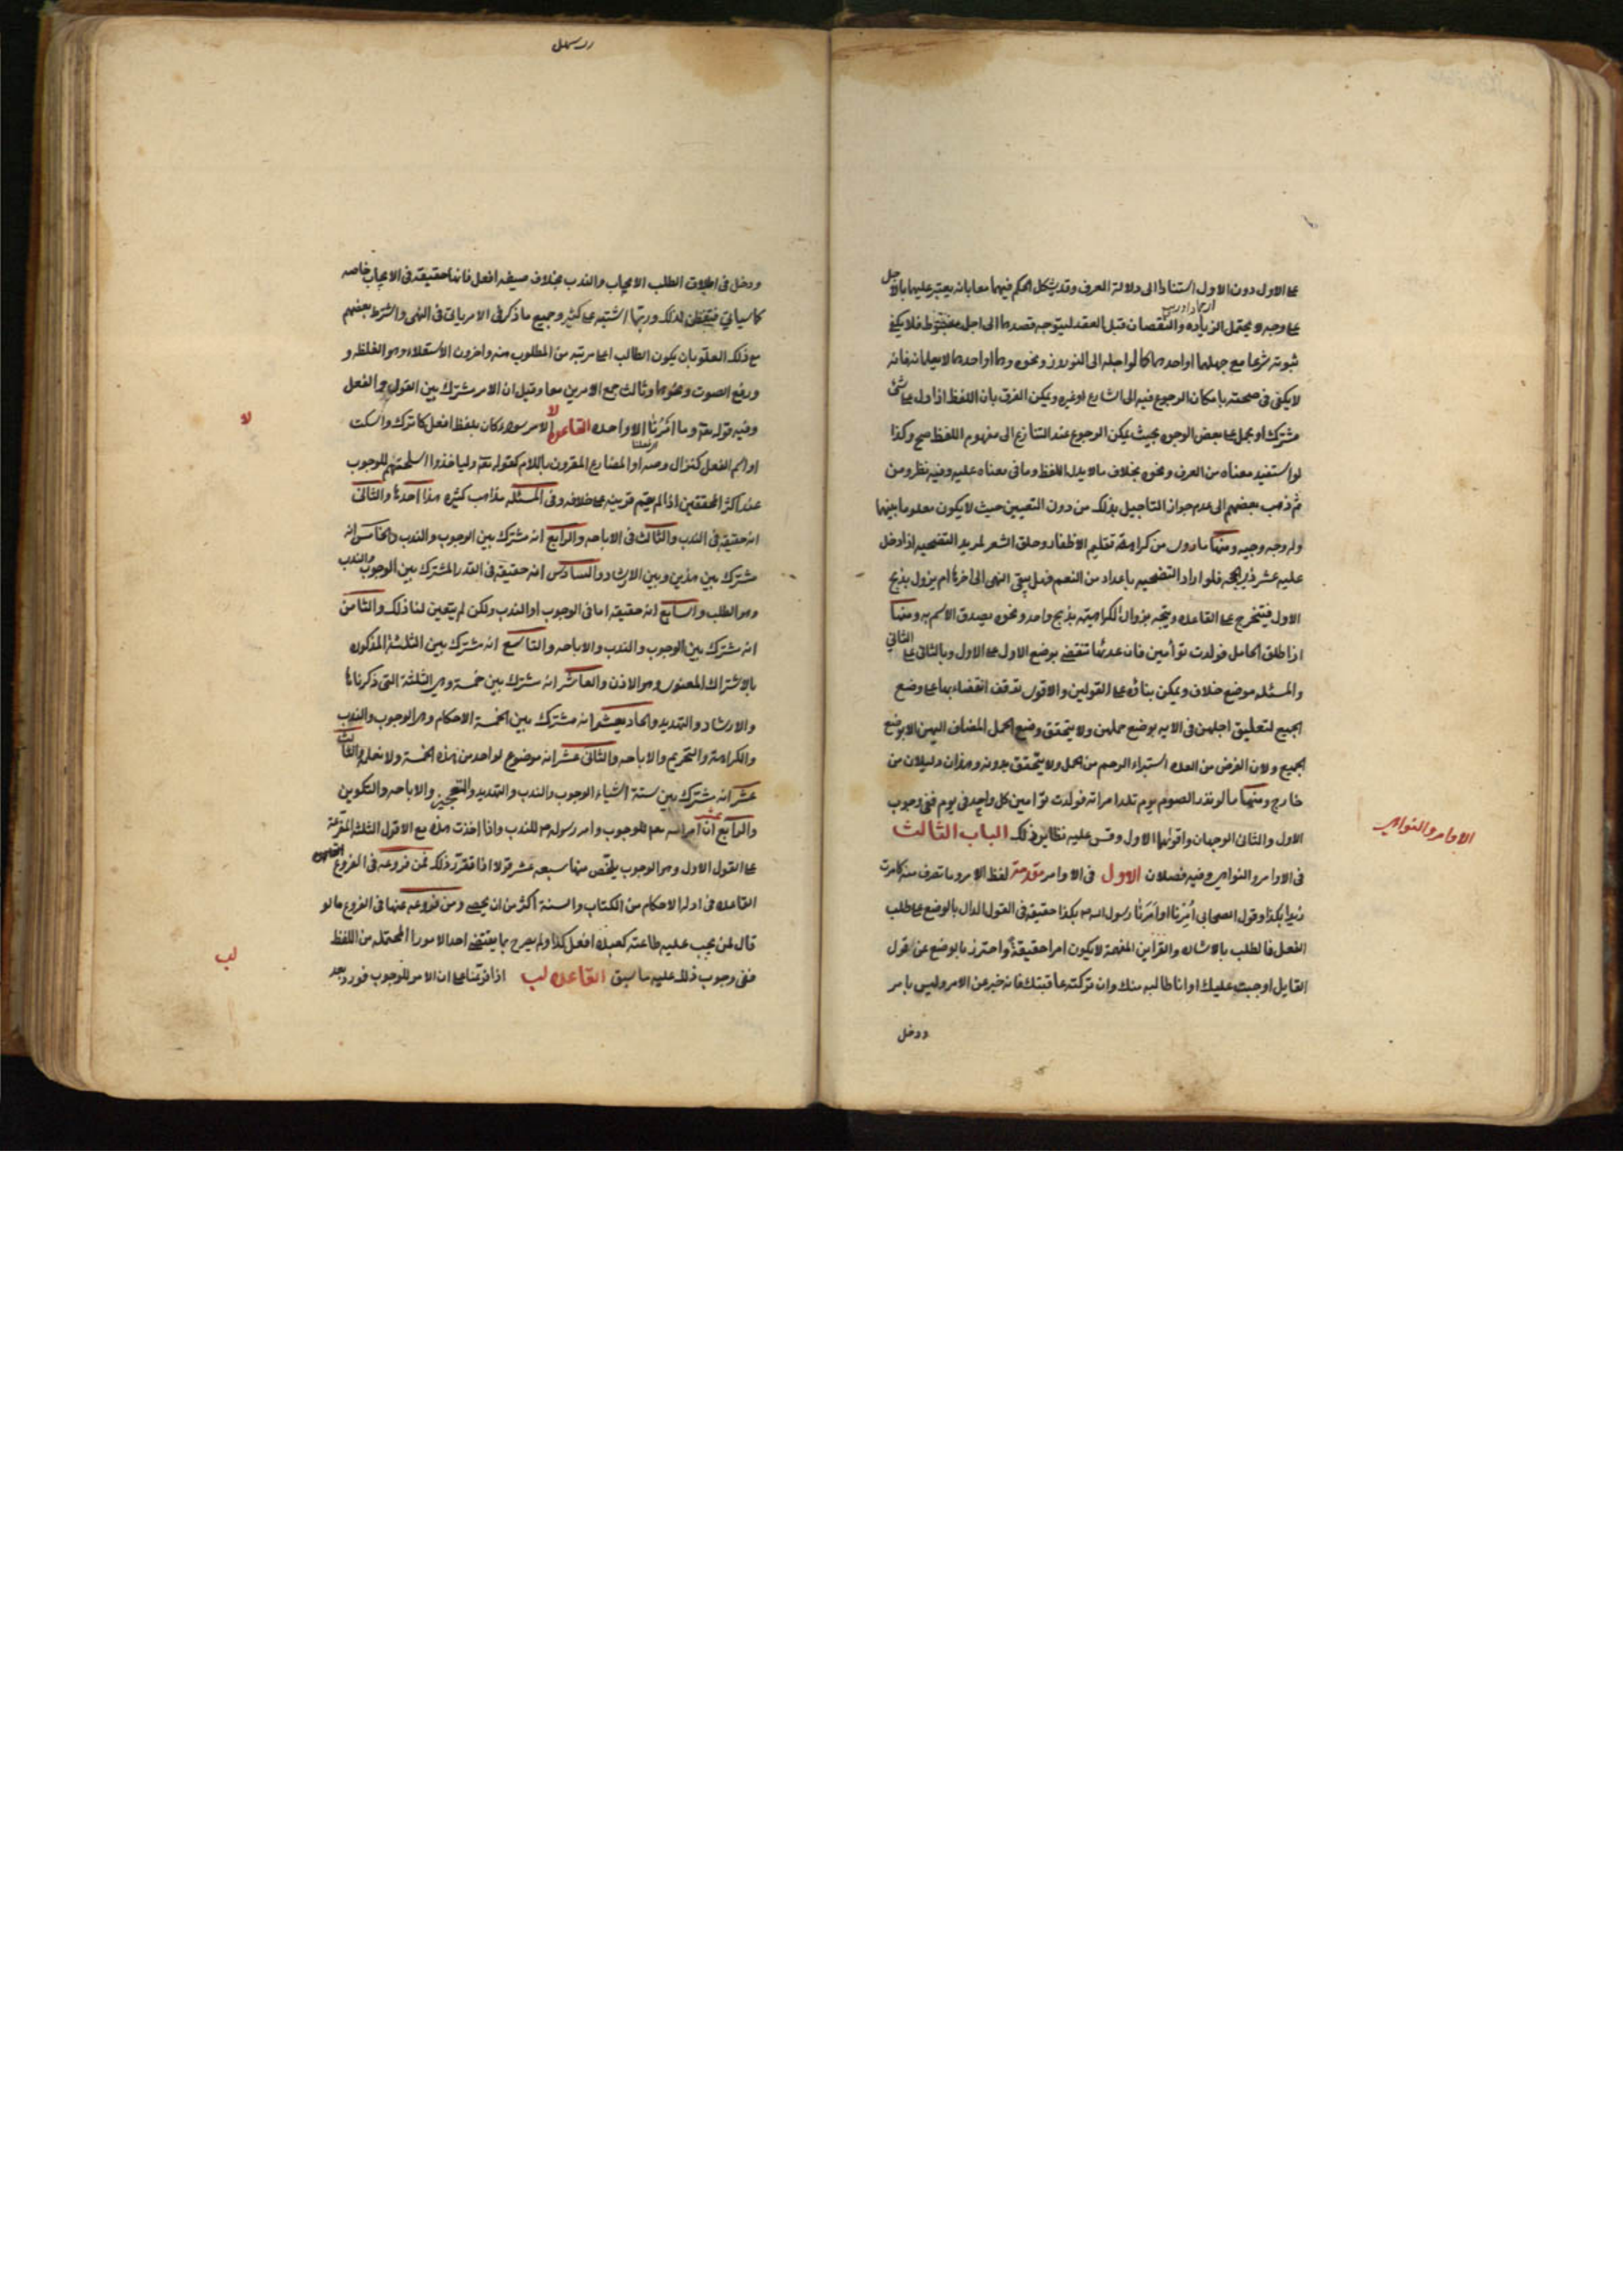 على الاول دون الاول استنادا الى دلالة العرف وقد يشكل الحكم فيهما معا بانه يعتبر عليهما بالاجل
على وجه لا يحتمل الزيادة والنقصان قبل العقد ليتوجه قصدهما الى اجل مضبوط فلا يكفى
ثبوته شرعا مع جهلهما او احدهما كما لو اجله الى النوروز ونحوه وهما او احدهما لا يعلمانه فانه
لا يكفى فى صحته بامكان الرجوع فيه الى الشارع او غيره ويمكن الفرق بان اللفظ اذا دل على شئ
مشترك او مجمل على بعض الوجوه بحيث يمكن الرجوع عند التنازع الى مفهوم اللفظ صح وكذا
لو استفيد معناه من العرف ونحوه بخلاف ما لا يدل اللفظ وما فى معناه عليه وفيه نظر ومن
ثم ذهب بعضهم الى عدم جواز التاجيل بذلك من دون التعيين حيث لا يكون معلوما بينهما
وله وجه وجيه ومنها ما روى من كراهة تقليم الاظفار وحلق الشعر لمريد التضحيه اذا دخل
عليه عشر ذى الحجه فلو اراد التضحيه باعداد من النعم فهل يبقى النهى الى اخرها ام يزول بذبح
الاول فيتخرج على القاعده ويتجه زوال الكراهيته بذبح واحد ونحوه بصدق الاسم به ومنها
اذا طلق الحامل فولدت توأمين فان عدتها تنقضى بوضع الاول على الاول وبالثانى على الثانى
والمسئله موضع خلاف ويمكن بناؤه على القولين والاقوى توقف انقضاءها على وضع
الجميع لتعليق اجلهن فى الايه بوضع حملهن ولا يتحقق وضع الحمل المضاف اليهن الا بوضع
الجميع ولان الغرض من العده استبراء الرحم من الحمل ولا يتحقق بدونه وهذان دليلان من
خارج ومنها ما لو نذر الصوم يوم تلد امراته فولدت توامين كل واحد فى يوم ففى وجوب
الاول والثانى الوجهان واقويهما الاول وقس عليه نظاير ذلك الباب الثالث
الاوامر والنواهى
فى الاوامر والنواهى وفيه فصلان الاول فى الاوامر مقدمة لفظ الامر وما تصرف منه كامرت
زيدا بكذا وقول الصحابى امرنا او أمَرَنا رسول الله ص بكذا حقيقة فى القول الدال بالوضع على طلب
الفعل فالطلب بالاشاره والقراين المفهمة لا يكون امرا حقيقةً واحترز بالوضع عن قول
القايل اوجبت عليك او انا طالبه منك وان تركته عاقبتك فانه خبر عن الامر وليس بامر
ودخل
ودخل فى اطلاق الطلب الايجاب والندب بخلاف صيغه افعل فانها حقيقة فى الايجاب خاصه
كما سياتى فتفطن لذلك وربما اشتبه على كثير وجميع ما ذكر فى الامر ياتى فى النهى واشترط بعضهم
مع ذلك العلو بان يكون الطالب اعلى مرتبه من المطلوب منه واخرون الاستعلاء وهو الغلظه و
ورفع الصوت ونحوهما وثالث جمع الامرين معا وقيل ان الامر مشترك بين القول والفعل
وفيه قوله تعه وما امرنا الا واحده القاعده لا الامر سواء كان بلفظ افعل كاترك واسكت
لا
او اسم الفعل كنزال وصه او المضارع المقرون باللام كقوله تعه ولياخذوا اسلحتهم للوجوب
عند اكثر المحققين اذا لم يقم قرينه على خلافه وفى المسئله مذاهب كثيره هذا احدها والثانى
انه حقيقة فى الندب والثالث فى الاباحه والرابع انه مشترك بين الوجوب والندب والخامس انه
مشترك بين هذين وبين الارشاد والسادس انه حقيقة فى القدر المشترك بين الوجوب والندب
وهو الطلب والسابع انه حقيقه اما فى الوجوب او الندب ولكن لم يتعين لنا ذلك والثامن
انه مشترك بين الوجوب والندب والاباحه والتاسع انه مشترك بين الثلثة المذكوره
بالاشتراك المعنوى وهو الاذن والعاشر انه مشترك بين خمسة وهى الثلثة التى ذكرناها
والارشاد والتهديد والحادى عشر انه مشترك بين الخمسة الاحكام وهى الوجوب والندب
والكراهة والتحريم والاباحه والثانى عشر انه موضوع لواحد من هذه الخمسة ولا نعلمه والثالث
عشر انه مشترك بين ستة اشياء الوجوب والندب والتهديد والتعجيز والاباحه والتكوين
والرابع عشر ان امر الله تعه للوجوب وامر رسوله ص للندب واذا اخذت هذه مع الاقول الثلثة المتفرعة
على القول الاول وهو الوجوب يتلخص منها سبعه عشر قولا اذا تقرر ذلك فمن فروعه فى الفروع
القاعده فى ادلة الاحكام من الكتاب والسنة اكثر من ان يحصى ومن فروعه عنها فى الفروع ما لو
قال لمن يجب عليه طاعته كعبده افعل كذا ولم يصرح بما يقتضى احد الامور المحتمله من اللفظ
لب
ففى وجوب ذلك عليه ما سبق القاعده لب اذا فرعنا على ان الامر للوجوب فورد بعد